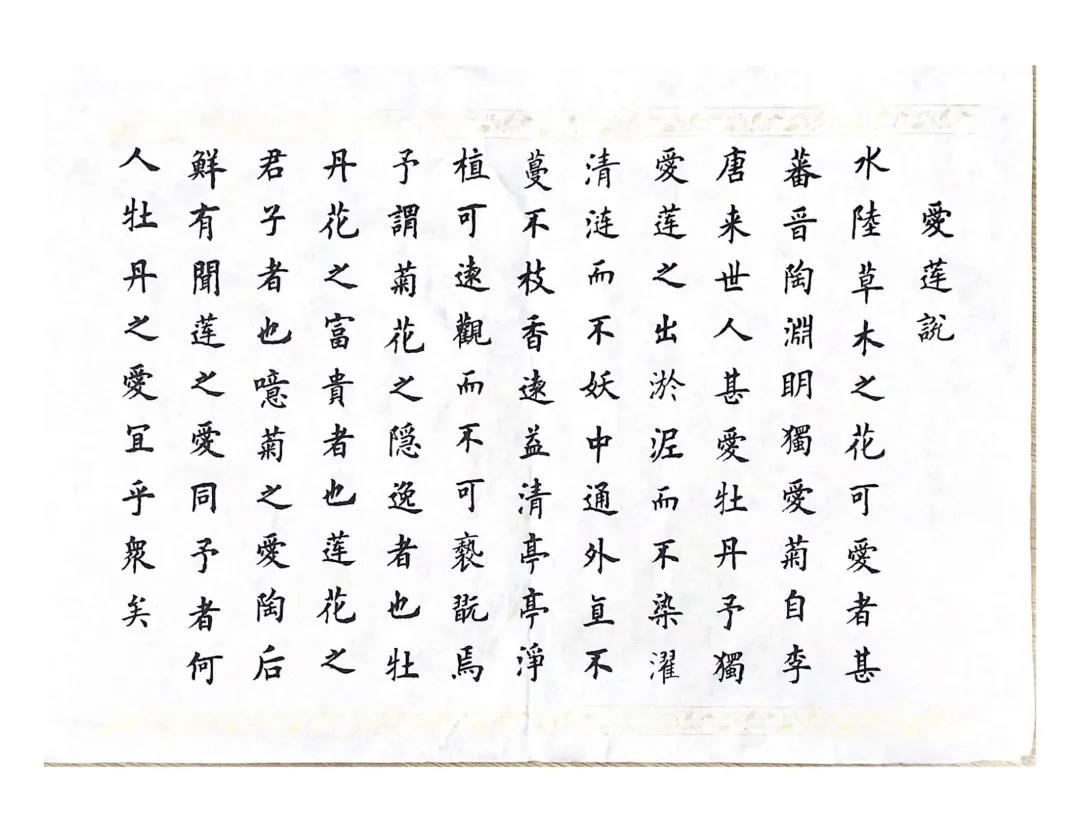 愛莲說
水陸草木之花可愛者甚
蕃晋陶淵明獨愛菊自李
唐来世人甚愛牡丹予獨
愛莲之出淤泥而不染濯
清涟而不妖中通外直不
蔓不枝香遠益清亭亭淨
植可遠觀而不可褻翫焉
予謂菊花之隠逸者也牡
丹花之富貴者也莲花之
君子者也噫菊之愛陶后
鮮有聞莲之愛同予者何
人牡丹之愛宜乎衆矣